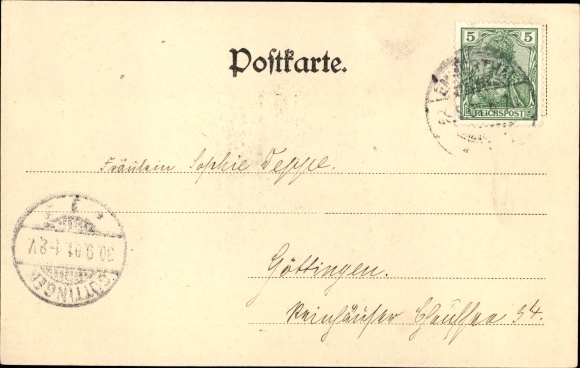 Postkarte.
5 5
REICHSPOST
Fräulein Sophie Deppe.
Göttingen.
Reinhäuser Chaussee 34.
GÖTTINGEN
30.9.01.1-2V.